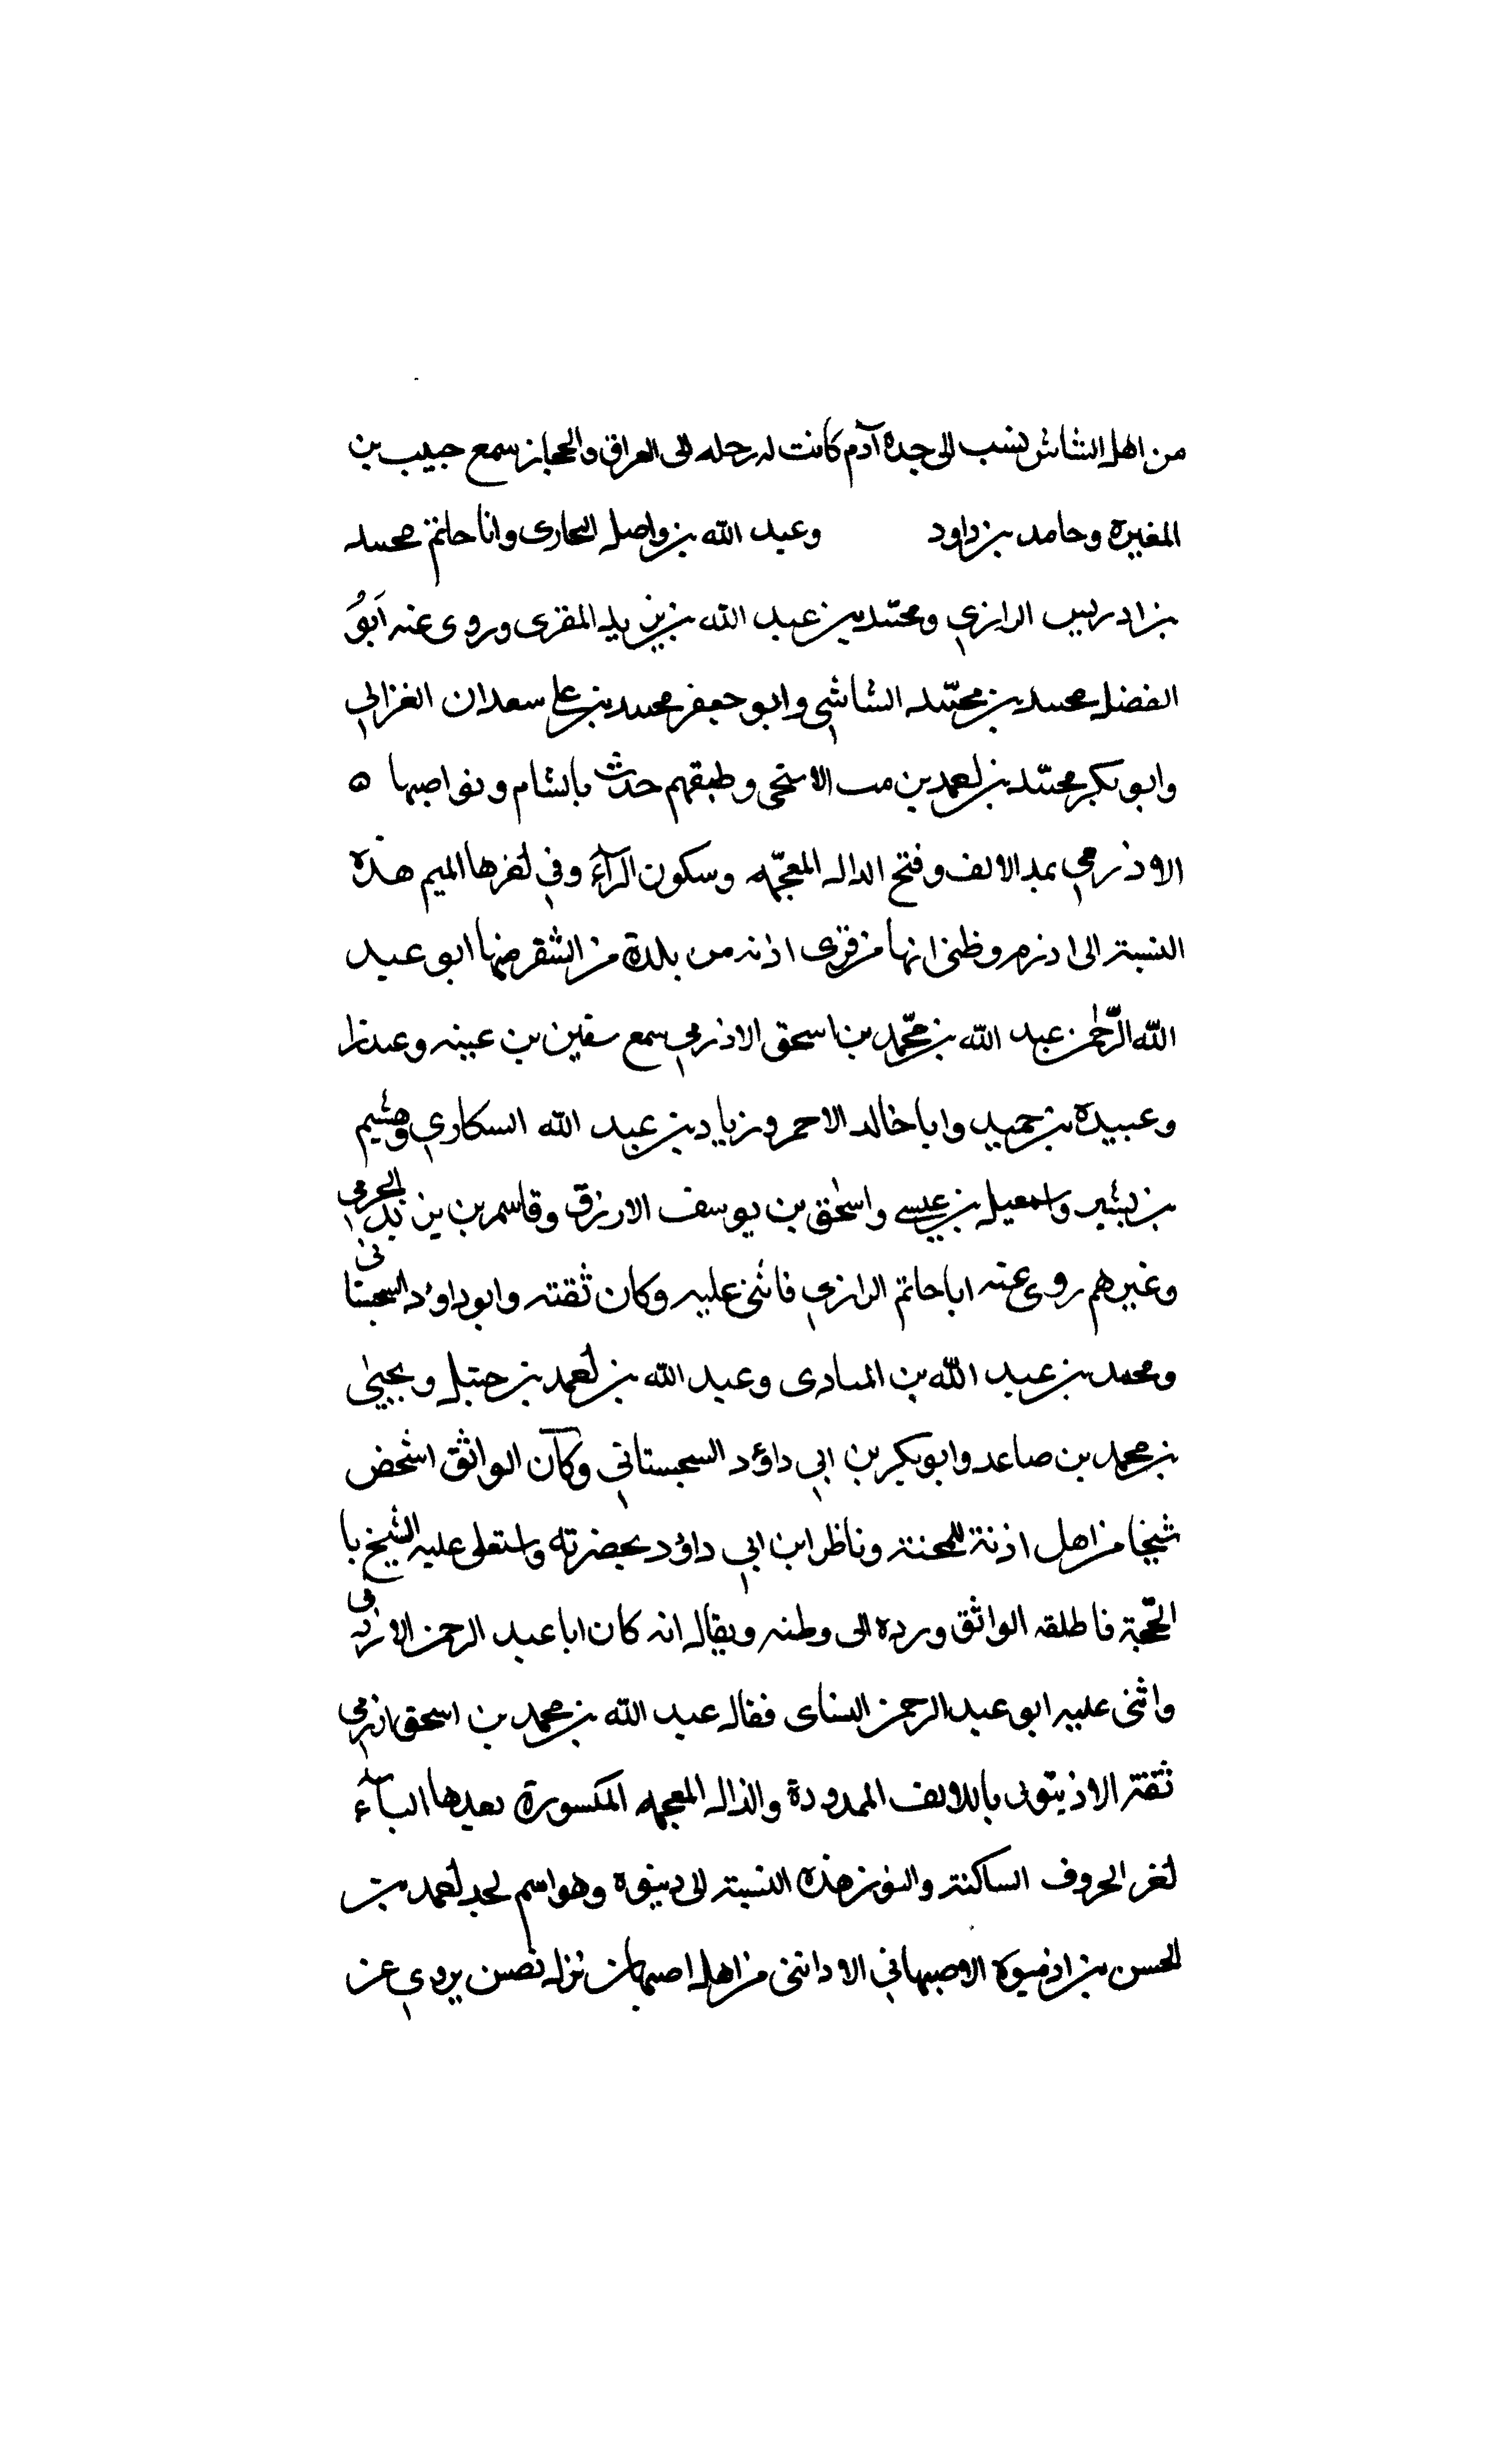 من اهل الشاش نسب الى جده آدم كانت له رحله الى العراق والحجاز سمع حبيب بن
المغيرة وحامد بن داود وعبد الله بن واصل البخارى وانا حاتم محمد
بن ادريس الرازي ومحمد بن عبد الله بن يزيد المقرى وروى عنه ابو
الفضل محمد بن محمد الشاشي وابو جعفر محمد بن علي سعدان الغزالي
وابو بكر محمد بن احمد بن مت الاشتخى وطبقهم حدث بالشام ونواصها ه
الاذرمي بمد الالف وفتح الدال المعجمه وسكون الرآء وفي اخرها الميم هذه
النسبة الى اذرم وظنى انها من قرى اذنه من بلدة من الثغر منها ابو عبد
الله الرحمن عبد الله بن محمد بن اسحق الاذرمي سمع سفين بن عيينه وعندرا
وعبيدة بن حميد وابا خالد الاحمر وزياد بن عبد الله السكاري وهشيم
بن بشير واسمعيل بن عيسے واسحق بن يوسف الازرق وقاسم بن يزيد الجرمي
وغيرهم روى عنه ابا حاتم الرازي فاثنى عليه وكان ثقته وابو داؤد السجستانى
ومحمد بن عبد الله بن المنادى وعبد الله بن احمد بن حنبل ويحيى
بن محمد بن صاعد وابو بكر بن ابي داؤد السجستاني وكان الواثق اشخص
شيخا من اهل اذنة للمحنة وناظر ابن ابي داؤد بحضرته واستعلى عليه الشيخ با
الحجة فاطلقه الواثق ورده الى وطنه ويقال انه كان ابا عبد الرحمن الاذرمي
واثنى عليه ابو عبد الرحمن النساى فقال عبد الله بن محمد بن اسحق اذرمي
ثقته الاذيتونى باالالف الممدودة والذال المعجمه المكسورة بعدها اليآء
اخر الحروف الساكنة والنون هذه النسبة الى دينوه وهو اسم لجد احمد بن
الحسن بن اذينوة الاصبهاني الاداننى من اهل اصبهان نزل نصين يروي عن